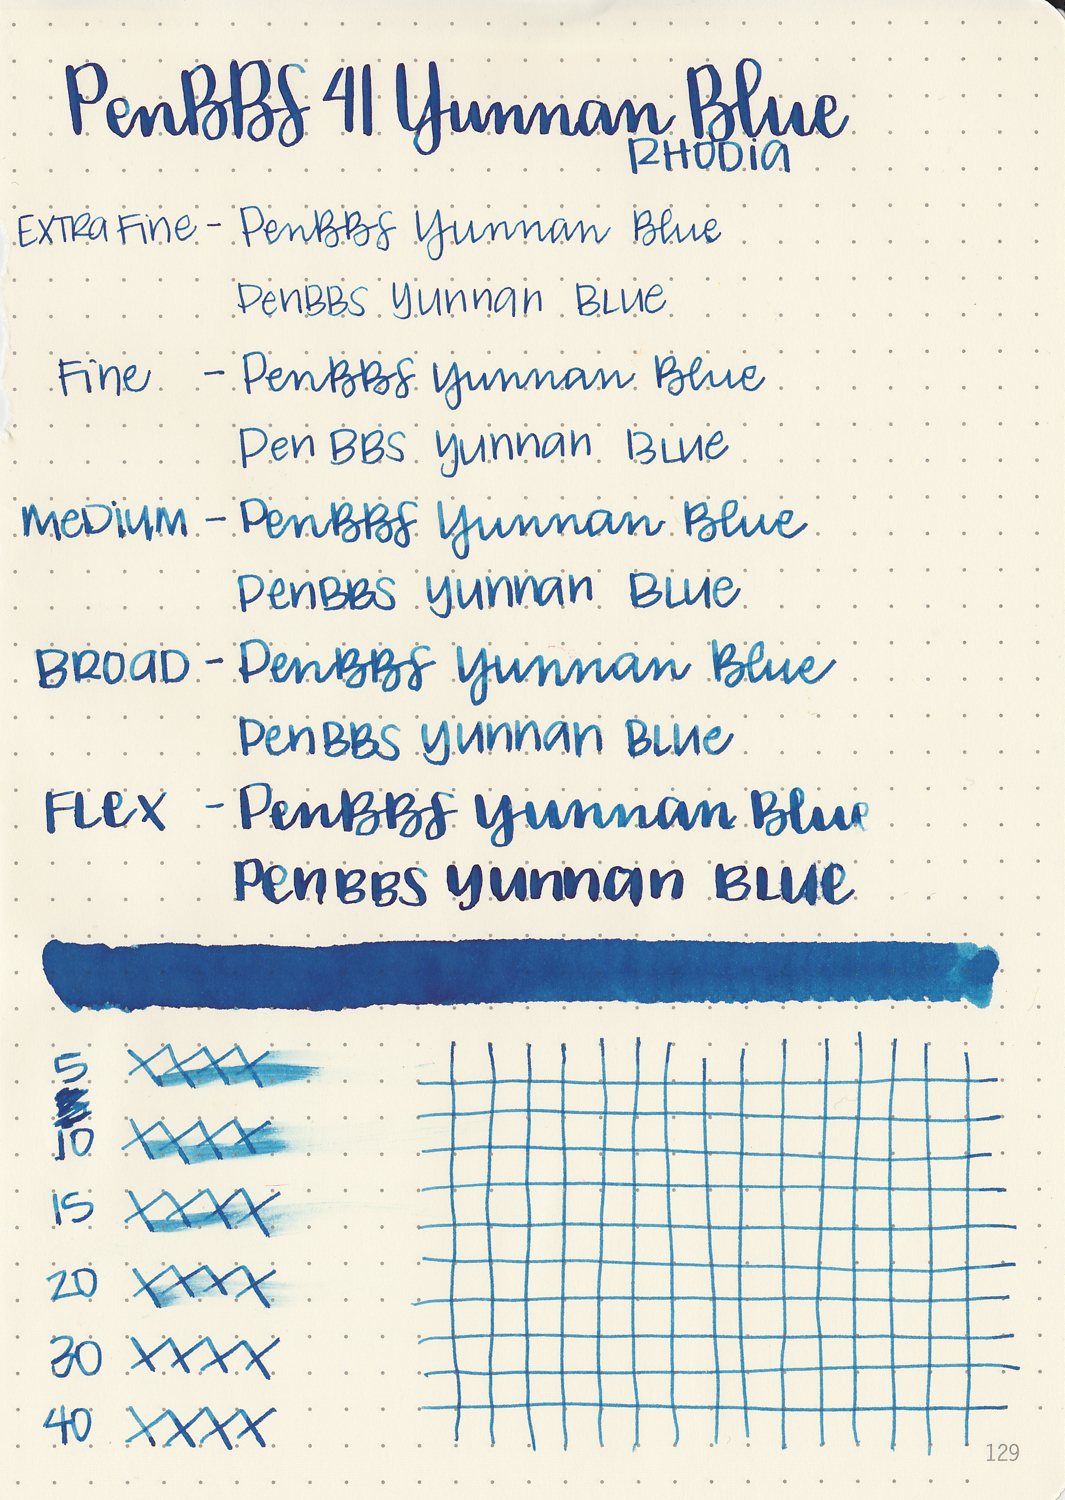 PenBBS 41 Yunnan Blue
RHODIA
EXTRA FiNe - PenBBS Yunnan Blue
PenBBS Yunnan BLUe
Fine - PenBBS Yunnan Blue
Pen BBS Yunnan BLUe
MeDiUM - PenBBS Yunnan Blue
PenBBS Yunnan BLUe
BROAD - PenBBS Yunnan Blue
PenBBS Yunnan BLUe
FLex - PenBBS Yunnan Blue
PenBBS Yunnan BLUe
5 XXXX
10 XXXX
15 XXXX
20 XXXX
30 XXXX
40 XXXX
129